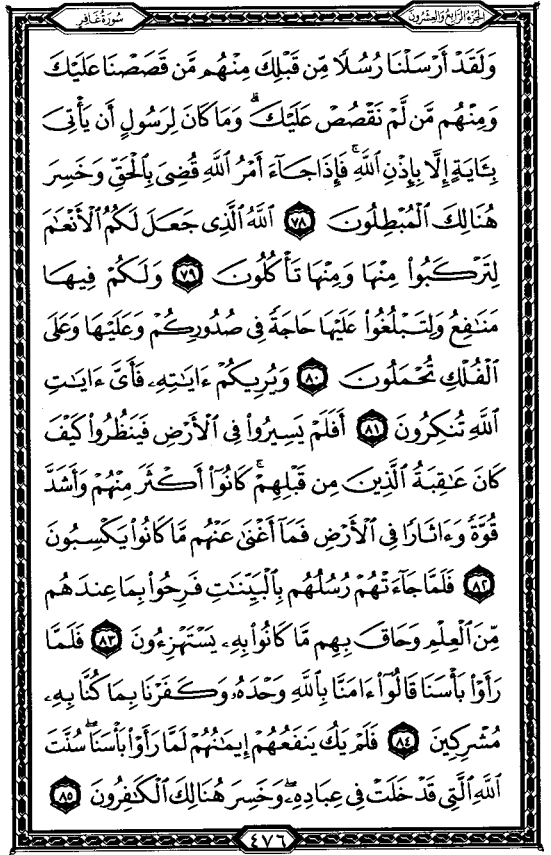 سُورَةُ غَافِرٍ
الجُزْءُ الرَّابِعُ وَالعِشْرُونَ
وَلَقَدْ أَرْسَلْنَا رُسُلًا مِّن قَبْلِكَ مِنْهُم مَّن قَصَصْنَا عَلَيْكَ
وَمِنْهُم مَّن لَّمْ نَقْصُصْ عَلَيْكَ ۗ وَمَا كَانَ لِرَسُولٍ أَن يَأْتِىَ
بِـَٔايَةٍ إِلَّا بِإِذْنِ اللَّهِ ۚ فَإِذَا جَآءَ أَمْرُ اللَّهِ قُضِىَ بِالْحَقِّ وَخَسِرَ
هُنَالِكَ الْمُبْطِلُونَ ٧٨ اللَّهُ الَّذِى جَعَلَ لَكُمُ الْأَنْعَٰمَ
لِتَرْكَبُوا۟ مِنْهَا وَمِنْهَا تَأْكُلُونَ ٧٩ وَلَكُمْ فِيهَا
مَنَٰفِعُ وَلِتَبْلُغُوا۟ عَلَيْهَا حَاجَةً فِى صُدُورِكُمْ وَعَلَيْهَا وَعَلَى
الْفُلْكِ تُحْمَلُونَ ٨٠ وَيُرِيكُمْ ءَايَٰتِهِۦ فَأَىَّ ءَايَٰتِ
اللَّهِ تُنكِرُونَ ٨١ أَفَلَمْ يَسِيرُوا۟ فِى الْأَرْضِ فَيَنظُرُوا۟ كَيْفَ
كَانَ عَٰقِبَةُ الَّذِينَ مِن قَبْلِهِمْ ۚ كَانُوٓا۟ أَكْثَرَ مِنْهُمْ وَأَشَدَّ
قُوَّةً وَءَاثَارًا فِى الْأَرْضِ فَمَآ أَغْنَىٰ عَنْهُم مَّا كَانُوا۟ يَكْسِبُونَ
٨٢ فَلَمَّا جَآءَتْهُمْ رُسُلُهُم بِالْبَيِّنَٰتِ فَرِحُوا۟ بِمَا عِندَهُم
مِّنَ الْعِلْمِ وَحَاقَ بِهِم مَّا كَانُوا۟ بِهِۦ يَسْتَهْزِءُونَ ٨٣ فَلَمَّا
رَأَوْا۟ بَأْسَنَا قَالُوٓا۟ ءَامَنَّا بِاللَّهِ وَحْدَهُۥ وَكَفَرْنَا بِمَا كُنَّا بِهِۦ
مُشْرِكِينَ ٨٤ فَلَمْ يَكُ يَنفَعُهُمْ إِيمَٰنُهُمْ لَمَّا رَأَوْا۟ بَأْسَنَا ۖ سُنَّتَ
اللَّهِ الَّتِى قَدْ خَلَتْ فِى عِبَادِهِۦ ۖ وَخَسِرَ هُنَالِكَ الْكَٰفِرُونَ ٨٥
٤٧٦